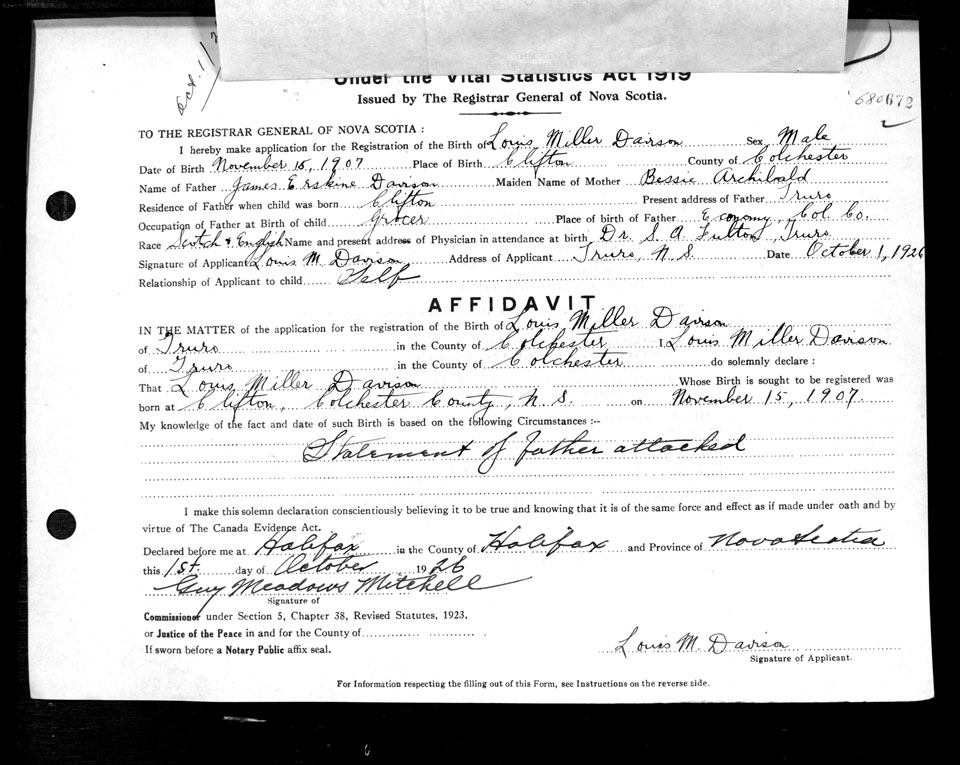 Oct. 1/
Under the Vital Statistics Act 1919
Issued by The Registrar General of Nova Scotia.
680672
TO THE REGISTRAR GENERAL OF NOVA SCOTIA :
I hereby make application for the Registration of the Birth of Louis Miller Davison Sex Male
Date of Birth November 15, 1907 Place of Birth Clifton County of Colchester
Name of Father James Erskine Davison Maiden Name of Mother Bessie Archibald
Residence of Father when child was born Clifton Present address of Father Truro
Occupation of Father at Birth of child Grocer Place of birth of Father Economy, Col. Co.
Race Scotch & English Name and present address of Physician in attendance at birth Dr. S. A. Fulton, Truro
Signature of Applicant Louis M. Davison Address of Applicant Truro, N. S. Date October 1, 1926
Relationship of Applicant to child Self
AFFIDAVIT
IN THE MATTER of the application for the registration of the Birth of Louis Miller Davison
of Truro in the County of Colchester I, Louis Miller Davison
of Truro in the County of Colchester do solemnly declare :
That Louis Miller Davison Whose Birth is sought to be registered was
born at Clifton, Colchester County, N. S. on November 15, 1907
My knowledge of the fact and date of such Birth is based on the following Circumstances :--
Statement of father attached
I make this solemn declaration conscientiously believing it to be true and knowing that it is of the same force and effect as if made under oath and by
virtue of The Canada Evidence Act.
Declared before me at Halifax in the County of Halifax and Province of Nova Scotia
this 1st. day of October 1926
Guy Meadows Mitchell
Signature of
Commissioner under Section 5, Chapter 38, Revised Statutes, 1923,
or Justice of the Peace in and for the County of
If sworn before a Notary Public affix seal.
Louis M. Davison
Signature of Applicant.
For Information respecting the filling out of this Form, see Instructions on the reverse side.